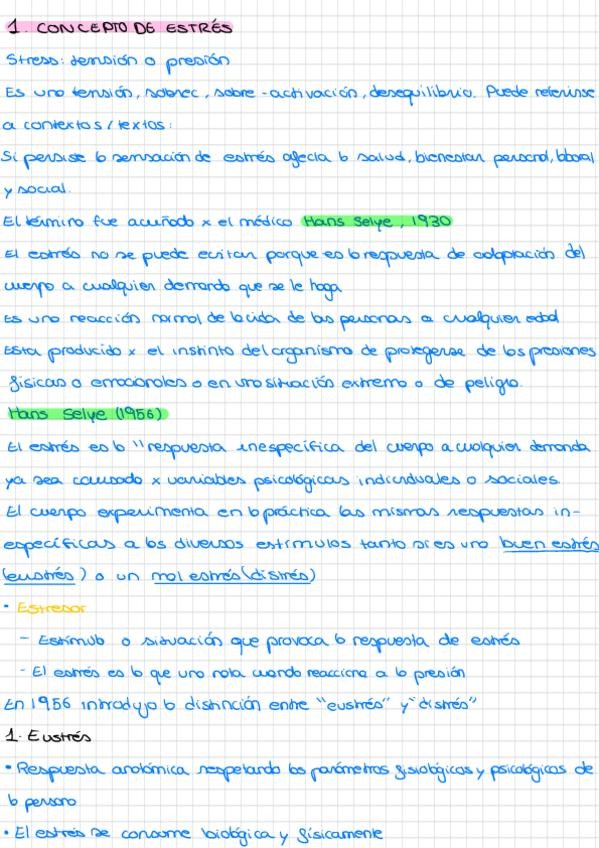 1. CONCEPTO DE ESTRÉS
Stress: tensión o presión
Es una tensión, sobrec, sobre-activación, desequilibrio. Puede referirse
a contextos/textos:
Si persiste la sensación de estrés afecta la salud, bienestar personal, laboral
y social.
El término fue acuñado x el médico Hans Selye, 1930
El estrés no se puede evitar porque es la respuesta de adaptación del
cuerpo a cualquier demanda que se le haga
Es una reacción normal de la vida de las personas a cualquier edad
Esta producido x el instinto del organismo de protegerse de las presiones
físicas o emocionales o en una situación extrema o de peligro.
Hans Selye (1956)
El estrés es la "respuesta inespecífica del cuerpo a cualquier demanda
ya sea causado x variables psicológicas individuales o sociales
El cuerpo experimenta en la práctica las mismas respuestas in-
específicas a los diversos estímulos tanto si es una buen estrés
(eustrés) o un mal estrés (distrés)
• Estresor
- Estímulo o situación que provoca la respuesta de estrés
- El estrés es lo que uno nota cuando reacciona a la presión
En 1956 introdujo la distinción entre "eustrés" y "distrés"
1. Eustrés
• Respuesta anatómica respetando los parámetros fisiológicos y psicológicos de
la persona
• El estrés se consume biológica y físicamente